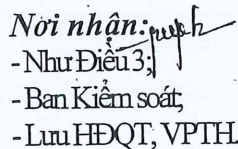 Nơi nhận:
- Như Điều 3;
- Ban Kiểm soát;
- Lưu HĐQT, VPTH.